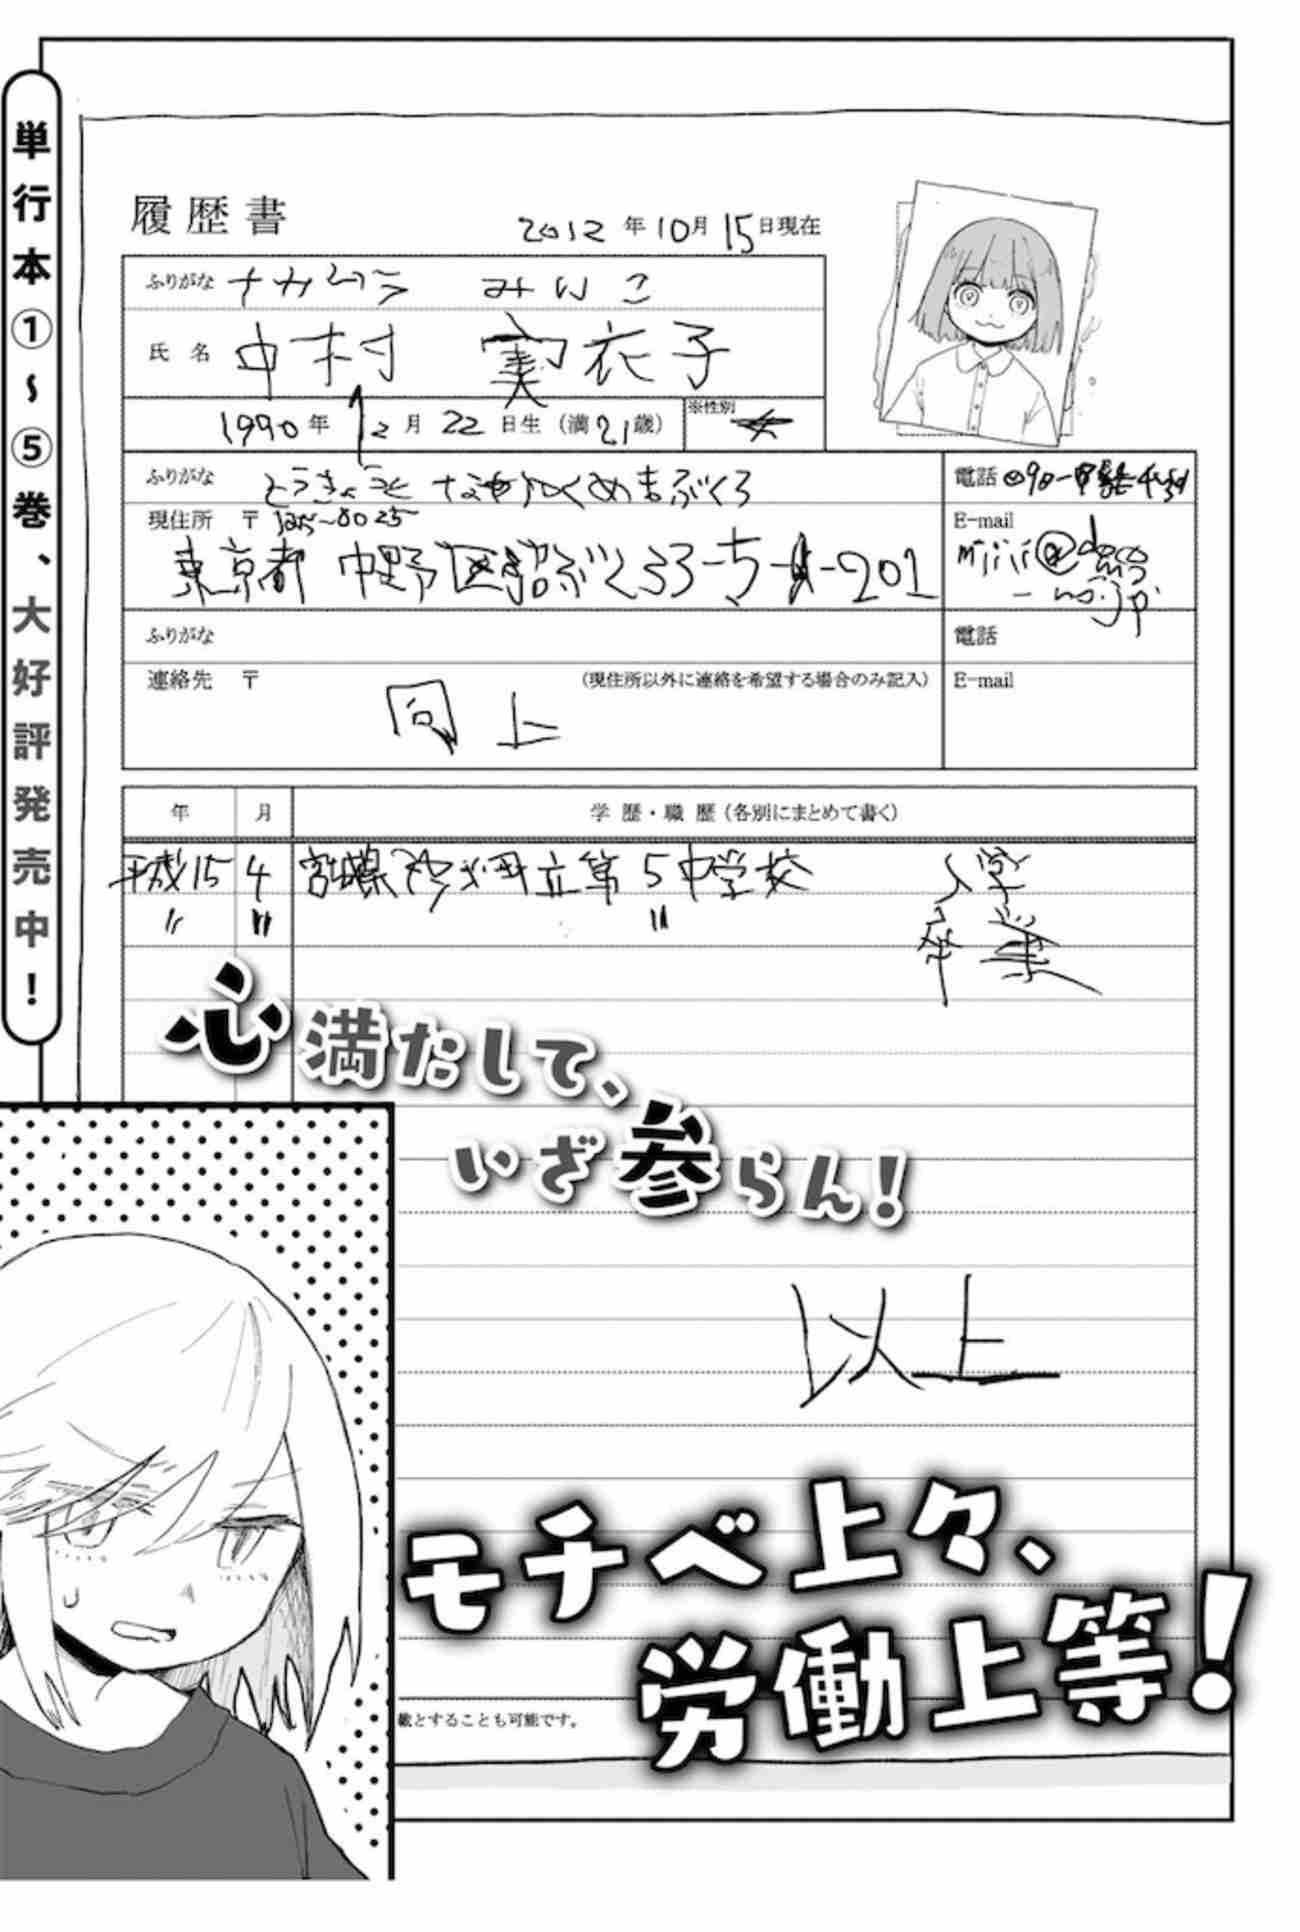 単行本①～⑤巻、大好評発売中！
履歴書
2012年10月15日現在
ふりがな ナカムラ みいこ
氏名 中村 実衣子
1990年12月22日生（満21歳）
※性別 女
ふりがな とうきょうと なかのくぬまぶくろ
電話 090-
現住所 〒 165-0025
E-mail
mijiji@docomo.ne.jp
東京都 中野区沼ぶくろ3-5-1-201
ふりがな
電話
連絡先 〒
（現住所以外に連絡を希望する場合のみ記入）
E-mail
同上
年 月 学歴・職歴（各別にまとめて書く）
平成15 4 宮城県 立第5中学校 入学
〃 〃 〃 卒業
心満たして、
いざ参らん！
以上
モチベ上々、
労働上等！
載とすることも可能です。